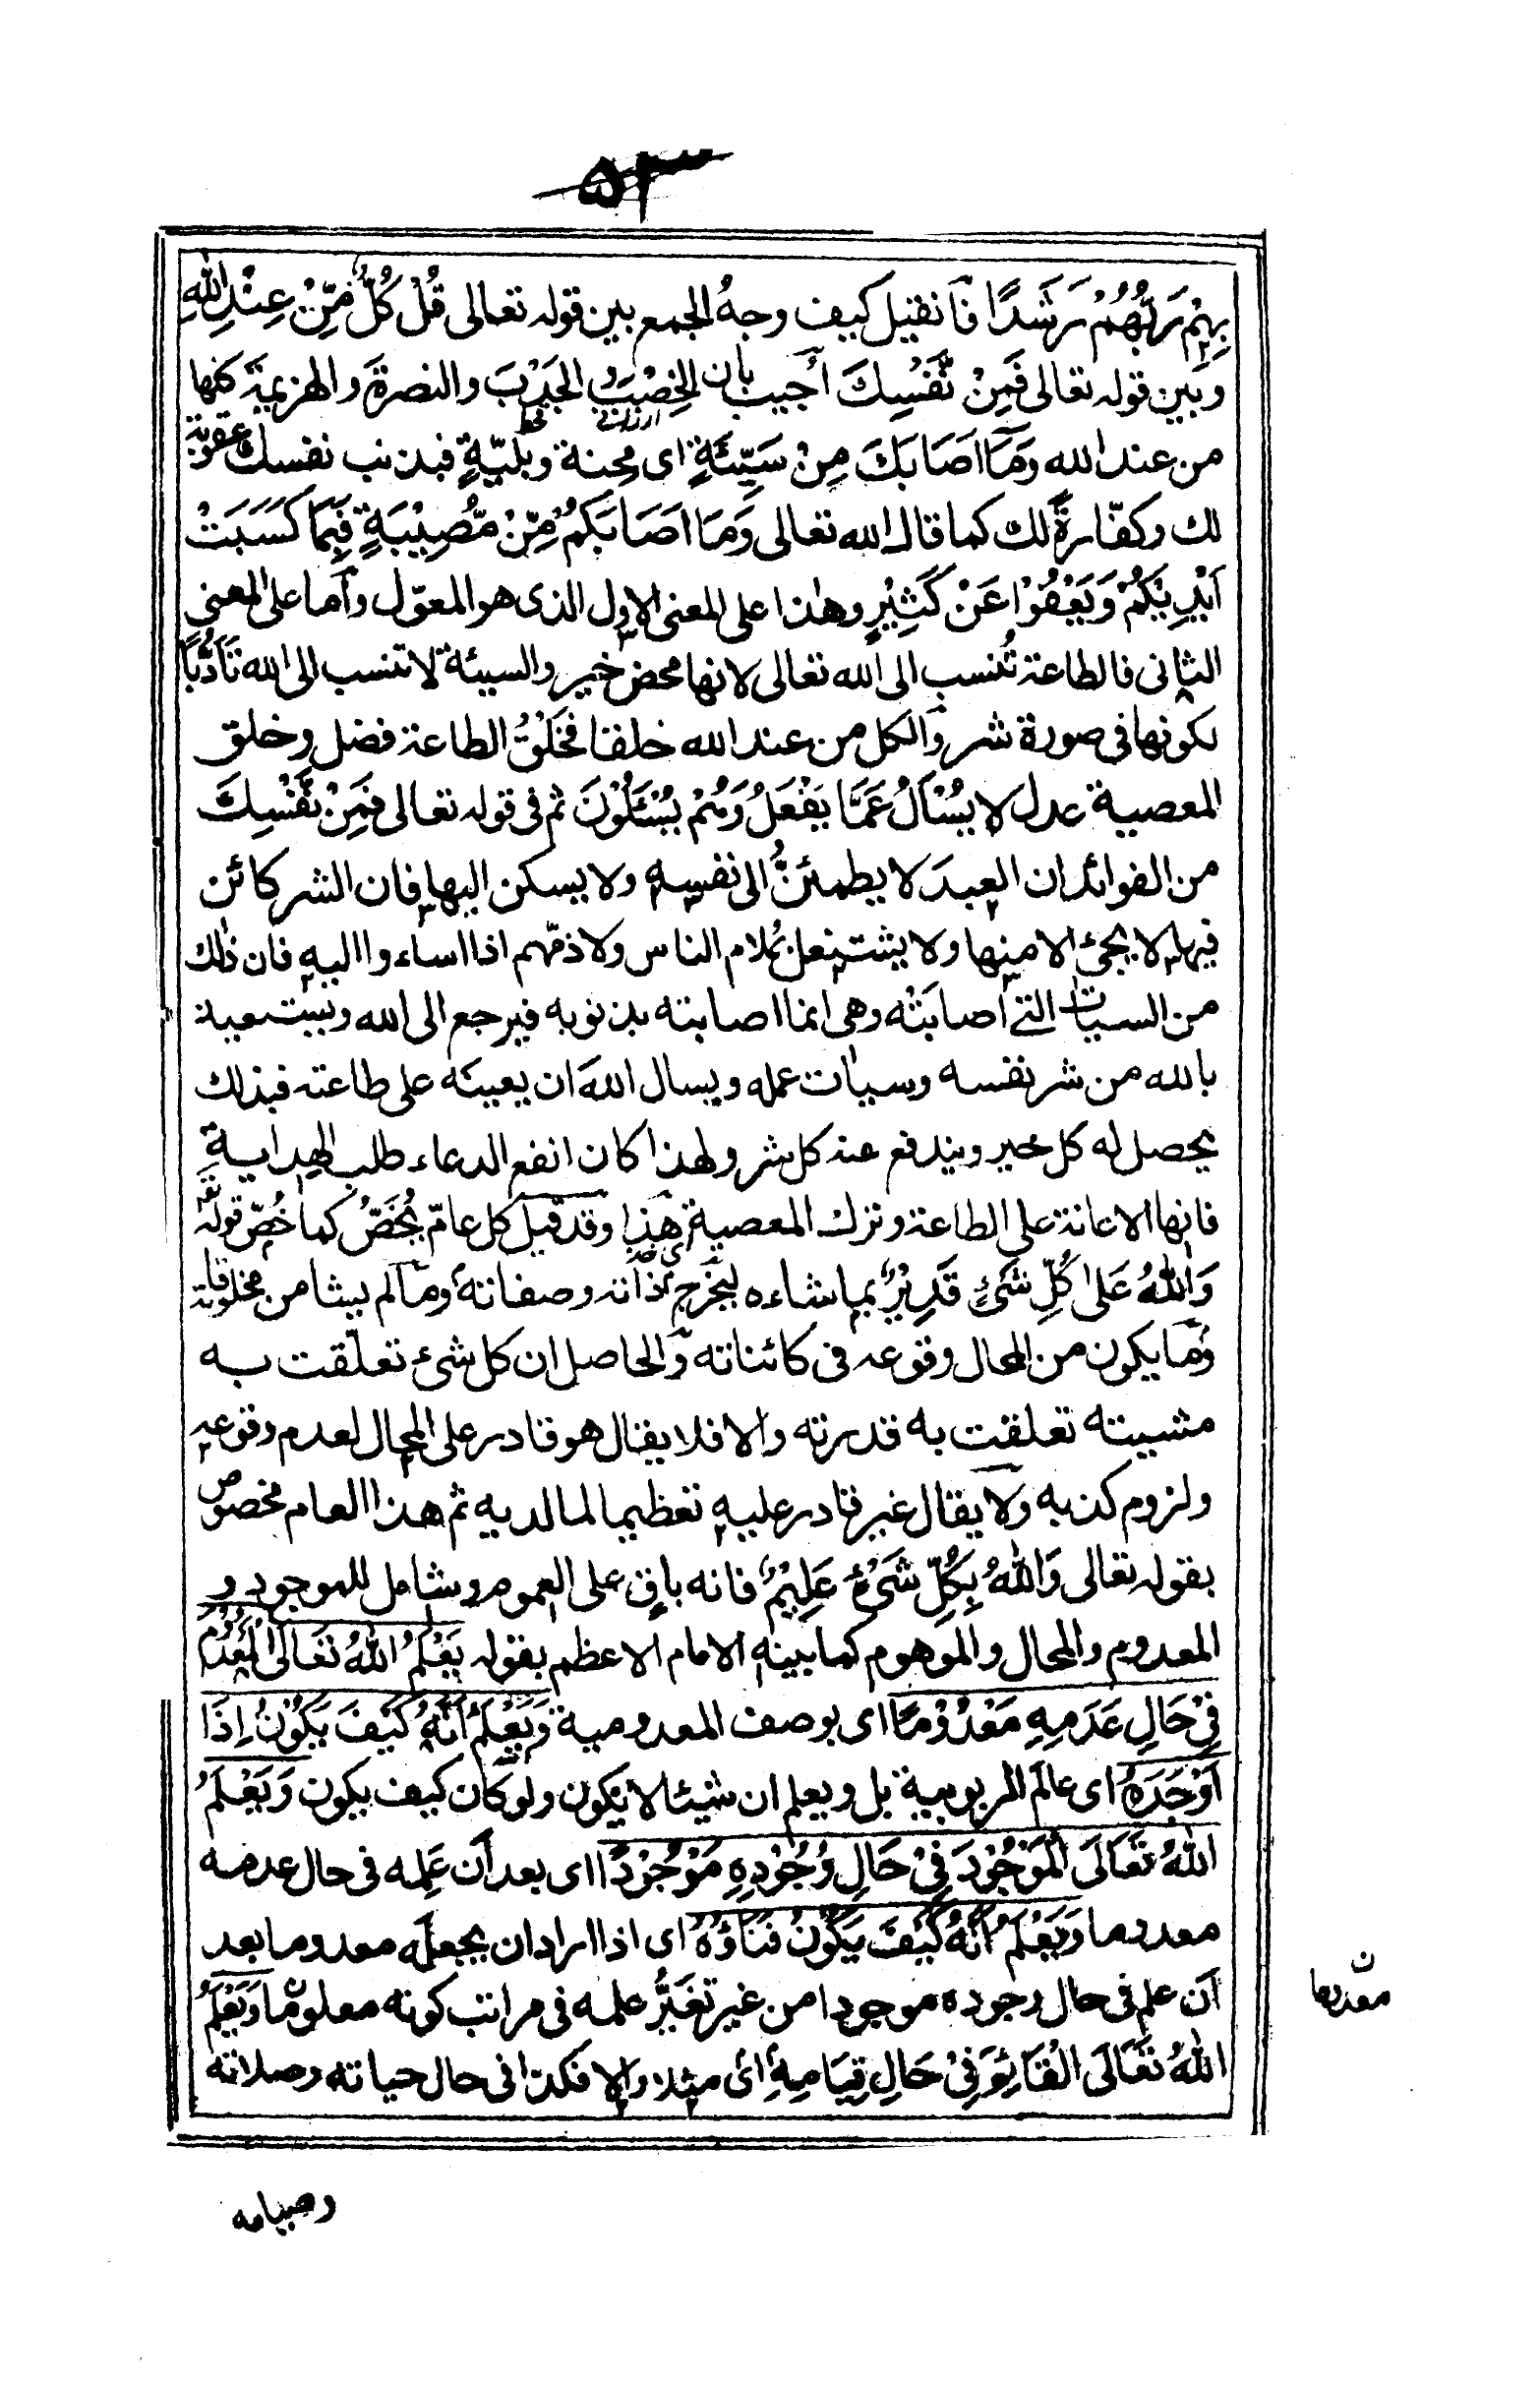 ٥٣
بِهِمْ رَبُّهُمْ رَشَدًا فان قيل كيف وجهُ الجمع بين قوله تعالى قُلْ كُلٌّ مِّنْ عِنْدِ اللّٰهِ
وبين قوله تعالى فَمِنْ نَّفْسِكَ أجيب بان الخِصْبَ والجَدْبَ والنصرةَ والهزيمةَ كلها
ارزانى قحط
من عند الله وَمَا اَصَابَكَ مِنْ سَيِّئَةٍ اى محِنة وبليّةٍ فبذنب نفسك عقوبة
لك وكفّارةً لك كما قال الله تعالى وَمَا اَصَابَكُمْ مِّنْ مُّصِيْبَةٍ فَبِمَا كَسَبَتْ
اَيْدِيْكُمْ وَيَعْفُوْا عَنْ كَثِيْرٍ وهٰذا على المعنى الاول الذى هو المعوّل وأما على المعنى
الثانى فالطاعة تُنسب الى الله تعالى لانها محض خير والسيئة لا تنسب الى الله تَأدُّبًا
لكونها فى صورة شر والكل من عند الله خلقا فخَلْقُ الطاعة فضل وخلق
المعصية عدل لا يُسْاَلُ عَمَّا يَفْعَلُ وَهُمْ يُسْئَلُوْنَ ثم فى قوله تعالى فَمِنْ نَّفْسِكَ
من الفوائد ان العبدَ لا يطمئنُّ الى نفسه ولا يسكن اليها فان الشر كائن
فيها لا يجئ الا منها ولا يشتغل بمَلام الناس ولا ذمّهم اذا اساءوا اليه فان ذٰلك
من السيات التى أصابَتْه وهى انما اصابته بذنوبه فيرجع الى الله ويستعيذ
بالله من شر نفسه وسيات عمله ويسال اللهَ ان يعينَه على طاعته فبذلك
يحصل له كل خير ويندفع عنه كل شر ولهذا كان انفع الدعاء طلب الهداية
فانها الاعانة على الطاعة وترك المعصية هٰذا وقد قيل كل عامّ يُخَصُّ كما خُصّ قولُه
وَاللّٰهُ عَلىٰ كُلِّ شَئٍ قَدِيْرٌ بما شاءه ليَخْرج ذاته وصفاته وما لم يشا من مخلوقاته
وما يكون من المحال وقوعه فى كائناته والحاصل ان كل شئ تعلّقت به
مشيته تعلقت به قدرته والا فلا يقال هو قادر على المحال لعدم وقوعه
ولزوم كذبه ولا يقال غير قادر عليه تعظيما لما لديه ثم هذا العام مخصوص
بقوله تعالى وَاللّٰهُ بِكُلِّ شَئٍ عَلِيْمٌ فانه باقٍ على العموم وشامل للموجود و
المعدوم والمحال والموهوم كما بيّنه الامام الاعظم بقوله يَعْلَمُ اللّٰهُ تَعَالَى الْمَعْدُوْمَ
فِيْ حَالِ عَدَمِهِ مَعْدُوْمًا اى بوصف المعدومية وَيَعْلَمُ اَنَّهٗ كَيْفَ يَكُوْنُ اِذَا
اَوْجَدَهُ اى عالم الربوبية بل ويعلم ان شيئا لا يكون ولو كان كيف يكون وَيَعْلَمُ
اللّٰهُ تَعَالَى الْمَوْجُوْدَ فِيْ حَالِ وُجُوْدِهِ مَوْجُوْدًا اى بعد أن عَلِمه فى حال عدمه
معدوما وَيَعْلَمُ اَنَّهُ كَيْفَ يَكُوْنُ فَنَاؤُهُ اى اذا اراد ان يجعلَه معدوما بعد
أن علم فى حال وجوده موجودا من غير تغيّرُ علمه فى مراتب كونه معلومًا وَيَعْلَمُ
اللّٰهُ تَعَالَى الْقَائِمَ فِيْ حَالِ قِيَامِهِ اى مثلا والا فكذا فى حال حياته وصلاته
وصيامه